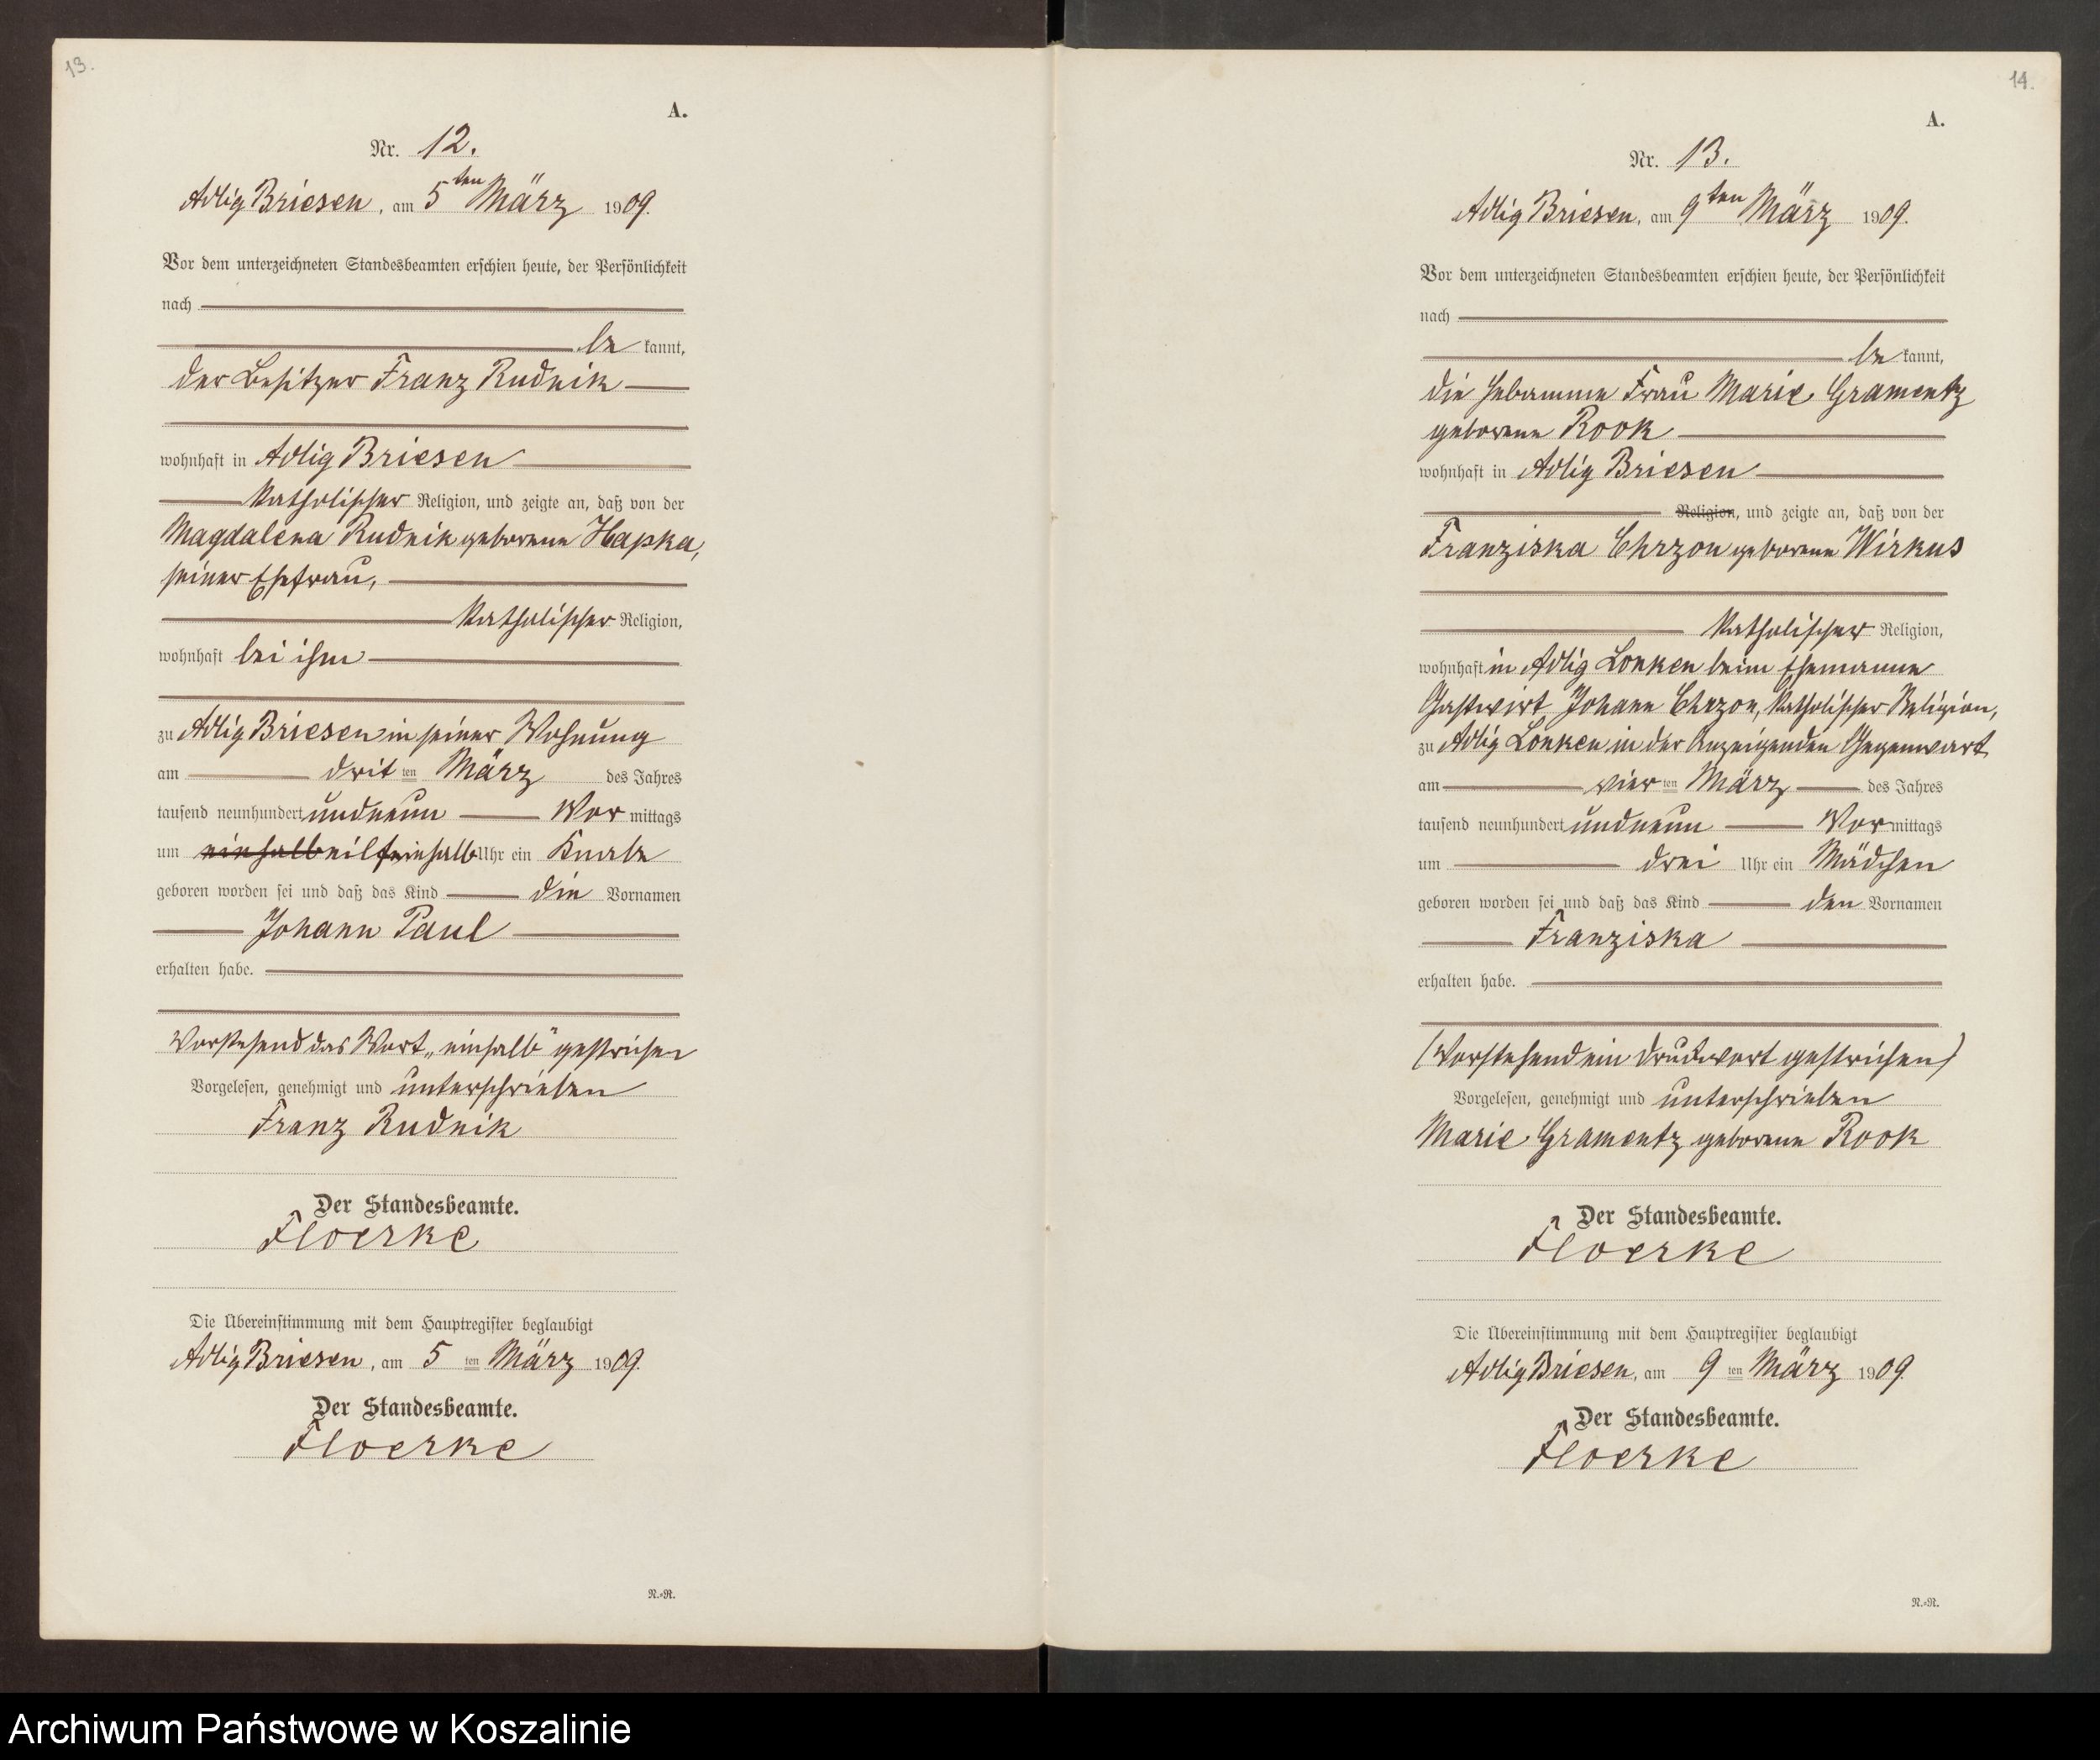 13.
A.
Nr. 12.
Adlig Briesen, am 5ten März 1909.
Vor dem unterzeichneten Standesbeamten erschien heute, der Persönlichkeit
nach
be kannt,
der Besitzer Franz Rudnik
wohnhaft in Adlig Briesen
katholischer Religion, und zeigte an, daß von der
Magdalena Rudnik geborene Hapka,
seiner Ehefrau,
katholischer Religion,
wohnhaft bei ihm
zu Adlig Briesen in seiner Wohnung
am dritten März des Jahres
tausend neunhundert undneun Vor mittags
um einhalb eilfeinhalb Uhr ein Knabe
geboren worden sei und daß das Kind die Vornamen
Johann Paul
erhalten habe.
Vorstehend das Wort „einhalb" gestrichen
Vorgelesen, genehmigt und unterschrieben
Franz Rudnik
Der Standesbeamte.
Floerke
Die Übereinstimmung mit dem Hauptregister beglaubigt
Adlig Briesen, am 5ten März 1909.
Der Standesbeamte.
Floerke
N.=R.
14.
A.
Nr. 13.
Adlig Briesen, am 9ten März 1909.
Vor dem unterzeichneten Standesbeamten erschien heute, der Persönlichkeit
nach
be kannt,
die Hebamme Frau Marie Gramentz
geborene Rook
wohnhaft in Adlig Briesen
Religion, und zeigte an, daß von der
Franziska Chrzon geborene Wirkus
katholischer Religion,
wohnhaft in Adlig Lonken beim Ehemanne
Gastwirt Johann Chrzon, katholischer Religion,
zu Adlig Lonken in der Anzeigenden Gegenwart
am vierten März des Jahres
tausend neunhundert undneun Vormittags
um drei Uhr ein Mädchen
geboren worden sei und daß das Kind den Vornamen
Franziska
erhalten habe.
(Vorstehend ein Druckwort gestrichen)
Vorgelesen, genehmigt und unterschrieben
Marie Gramentz geborene Rook
Der Standesbeamte.
Floerke
Die Übereinstimmung mit dem Hauptregister beglaubigt
Adlig Briesen, am 9ten März 1909.
Der Standesbeamte.
Floerke
N.=R.
Archiwum Państwowe w Koszalinie